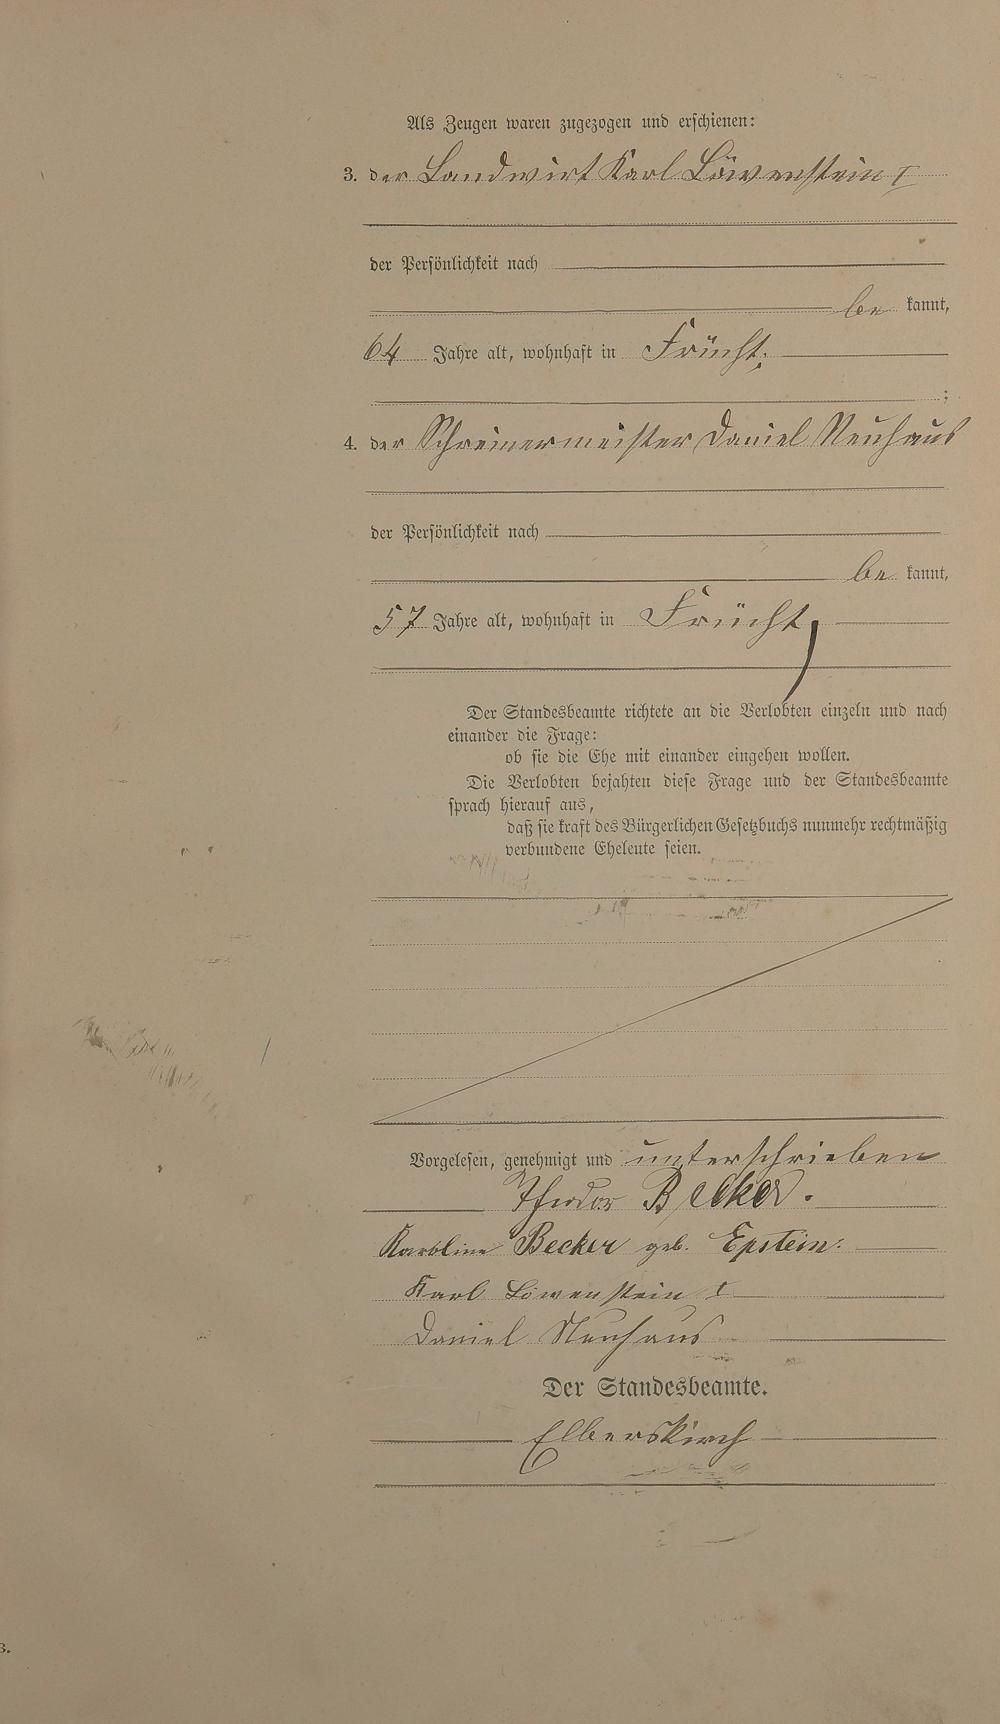 Als Zeugen waren zugezogen und erschienen:
3. der Landwirt Karl Löwenstein I
der Persönlichkeit nach
be kannt,
64 Jahre alt, wohnhaft in Frücht;
;
4. der Schreinermeister Daniel Neuhaus
der Persönlichkeit nach
be kannt,
57 Jahre alt, wohnhaft in Frücht,
Der Standesbeamte richtete an die Verlobten einzeln und nach
einander die Frage:
ob sie die Ehe mit einander eingehen wollen.
Die Verlobten bejahten diese Frage und der Standesbeamte
sprach hierauf aus,
daß sie kraft des Bürgerlichen Gesetzbuchs nunmehr rechtmäßig
verbundene Eheleute seien.
Vorgelesen, genehmigt und unterschrieben
Theodor Becker.
Karoline Becker geb. Epstein.
Karl Löwenstein I
Daniel Neuhaus
Der Standesbeamte.
Elberskirch
B.